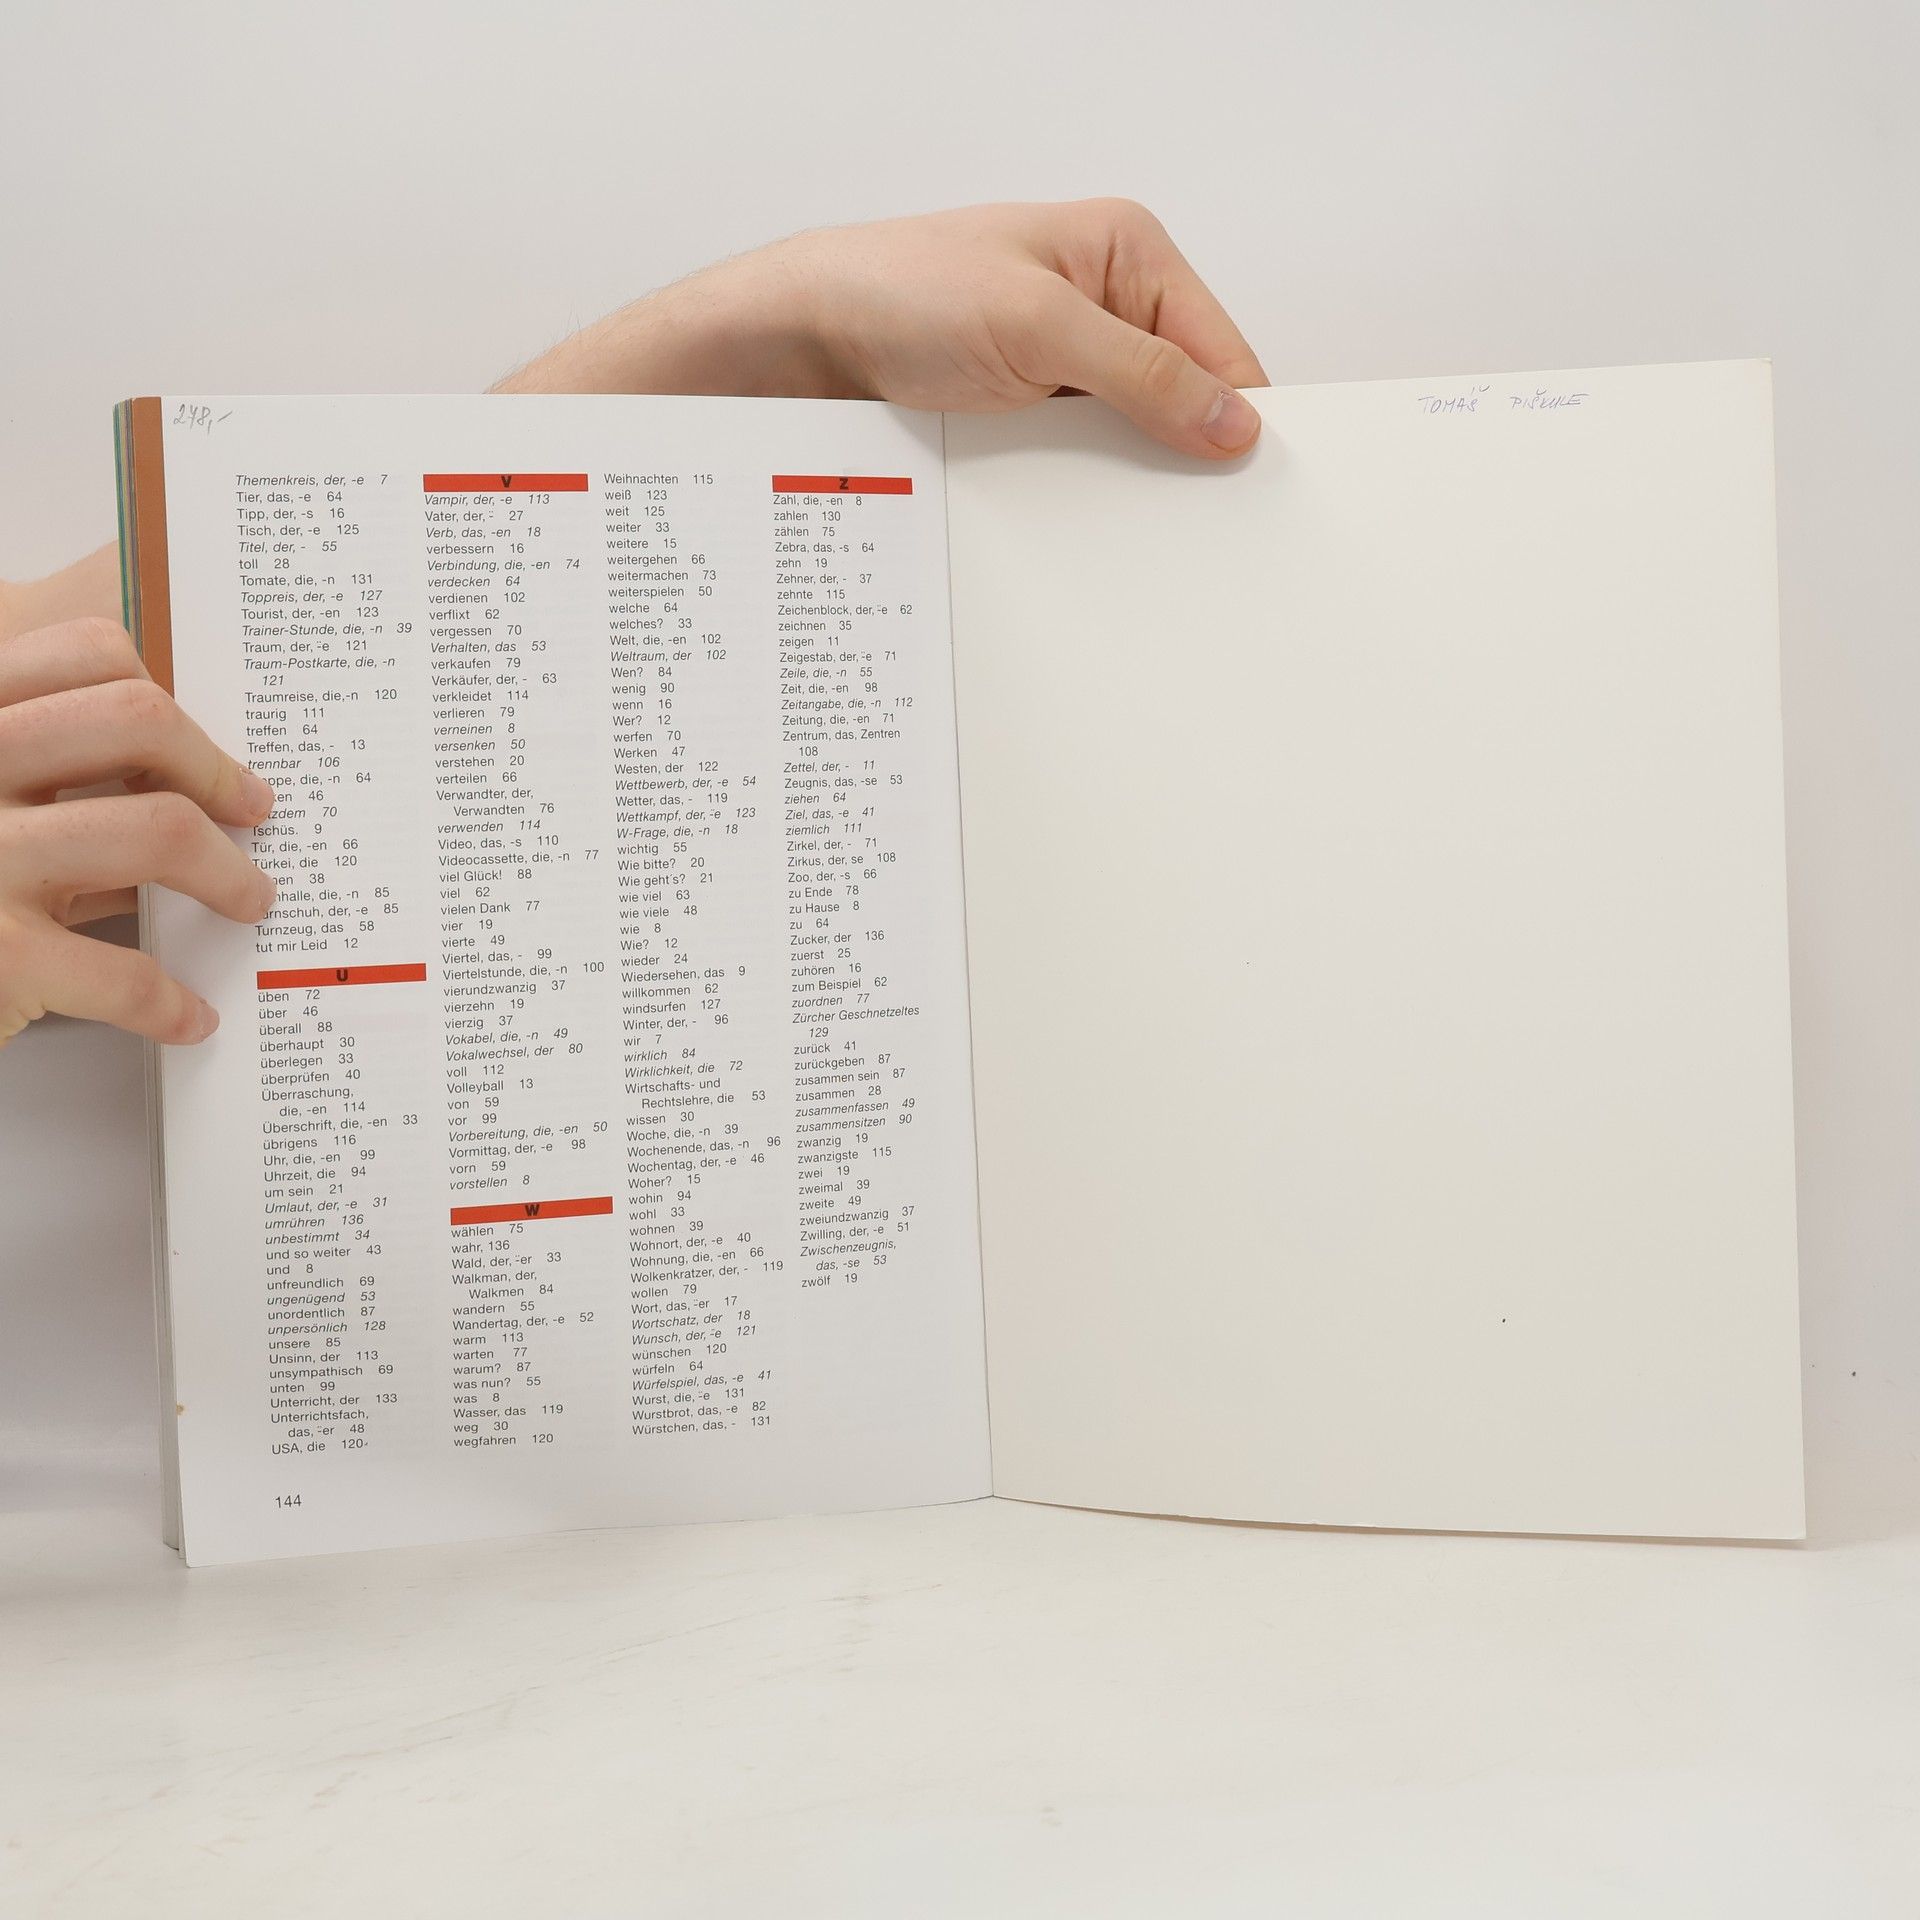 278,-
TOMÁŠ
Themenkreis, der, -e 7
Tier, das, -e 64
Tipp, der, -s 16
Tisch, der, -e 125
Titel, der, - 55
toll 28
Tomate, die, -n 131
Toppreis, der, -e 127
Tourist, der, -en 123
Trainer-Stunde, die, -n 39
Traum, der, ⸚e 121
Traum-Postkarte, die, -n
121
Traumreise, die,-n 120
traurig 111
treffen 64
Treffen, das, - 13
trennbar 106
die, -n 64
46
70
Tschüs. 9
Tür, die, -en 66
Türkei, die 120
38
die, -n 85
der, -e 85
Turnzeug, das 58
tut mir Leid 12
U
üben 72
über 46
überall 88
überhaupt 30
überlegen 33
überprüfen 40
Überraschung,
die, -en 114
Überschrift, die, -en 33
übrigens 116
Uhr, die, -en 99
Uhrzeit, die 94
um sein 21
Umlaut, der, -e 31
umrühren 136
unbestimmt 34
und so weiter 43
und 8
unfreundlich 69
ungenügend 53
unordentlich 87
unpersönlich 128
unsere 85
Unsinn, der 113
unsympathisch 69
unten 99
Unterricht, der 133
Unterrichtsfach,
das, ⸚er 48
USA, die 120
V
Vampir, der, -e 113
Vater, der, ⸚ 27
Verb, das, -en 18
verbessern 16
Verbindung, die, -en 74
verdecken 64
verdienen 102
verflixt 62
vergessen 70
Verhalten, das 53
verkaufen 79
Verkäufer, der, - 63
verkleidet 114
verlieren 79
verneinen 8
versenken 50
verstehen 20
verteilen 66
Verwandter, der,
Verwandten 76
verwenden 114
Video, das, -s 110
Videocassette, die, -n 77
viel Glück! 88
viel 62
vielen Dank 77
vier 19
vierte 49
Viertel, das, - 99
Viertelstunde, die, -n 100
vierundzwanzig 37
vierzehn 19
vierzig 37
Vokabel, die, -n 49
Vokalwechsel, der 80
voll 112
Volleyball 13
von 59
vor 99
Vorbereitung, die, -en 50
Vormittag, der, -e 98
vorn 59
vorstellen 8
W
wählen 75
wahr, 136
Wald, der, ⸚er 33
Walkman, der,
Walkmen 84
wandern 55
Wandertag, der, -e 52
warm 113
warten 77
warum? 87
was nun? 55
was 8
Wasser, das 119
weg 30
wegfahren 120
Weihnachten 115
weiß 123
weit 125
weiter 33
weitere 15
weitergehen 66
weitermachen 73
weiterspielen 50
welche 64
welches? 33
Welt, die, -en 102
Weltraum, der 102
Wen? 84
wenig 90
wenn 16
Wer? 12
werfen 70
Werken 47
Westen, der 122
Wettbewerb, der, -e 54
Wetter, das, - 119
Wettkampf, der, ⸚e 123
W-Frage, die, -n 18
wichtig 55
Wie bitte? 20
Wie geht´s? 21
wie viel 63
wie viele 48
wie 8
Wie? 12
wieder 24
Wiedersehen, das 9
willkommen 62
windsurfen 127
Winter, der, - 96
wir 7
wirklich 84
Wirklichkeit, die 72
Wirtschafts- und
Rechtslehre, die 53
wissen 30
Woche, die, -n 39
Wochenende, das, -n 96
Wochentag, der, -e 46
Woher? 15
wohin 94
wohl 33
wohnen 39
Wohnort, der, -e 40
Wohnung, die, -en 66
Wolkenkratzer, der, - 119
wollen 79
Wort, das, ⸚er 17
Wortschatz, der 18
Wunsch, der, ⸚e 121
wünschen 120
würfeln 64
Würfelspiel, das, -e 41
Wurst, die, ⸚e 131
Wurstbrot, das, -e 82
Würstchen, das, - 131
Z
Zahl, die, -en 8
zahlen 130
zählen 75
Zebra, das, -s 64
zehn 19
Zehner, der, - 37
zehnte 115
Zeichenblock, der, ⸚e 62
zeichnen 35
zeigen 11
Zeigestab, der, ⸚e 71
Zeile, die, -n 55
Zeit, die, -en 98
Zeitangabe, die, -n 112
Zeitung, die, -en 71
Zentrum, das, Zentren
108
Zettel, der, - 11
Zeugnis, das, -se 53
ziehen 64
Ziel, das, -e 41
ziemlich 111
Zirkel, der, - 71
Zirkus, der, se 108
Zoo, der, -s 66
zu Ende 78
zu Hause 8
zu 64
Zucker, der 136
zuerst 25
zuhören 16
zum Beispiel 62
zuordnen 77
Zürcher Geschnetzeltes
129
zurück 41
zurückgeben 87
zusammen sein 87
zusammen 28
zusammenfassen 49
zusammensitzen 90
zwanzig 19
zwanzigste 115
zwei 19
zweimal 39
zweite 49
zweiundzwanzig 37
Zwilling, der, -e 51
Zwischenzeugnis,
das, -se 53
zwölf 19
144